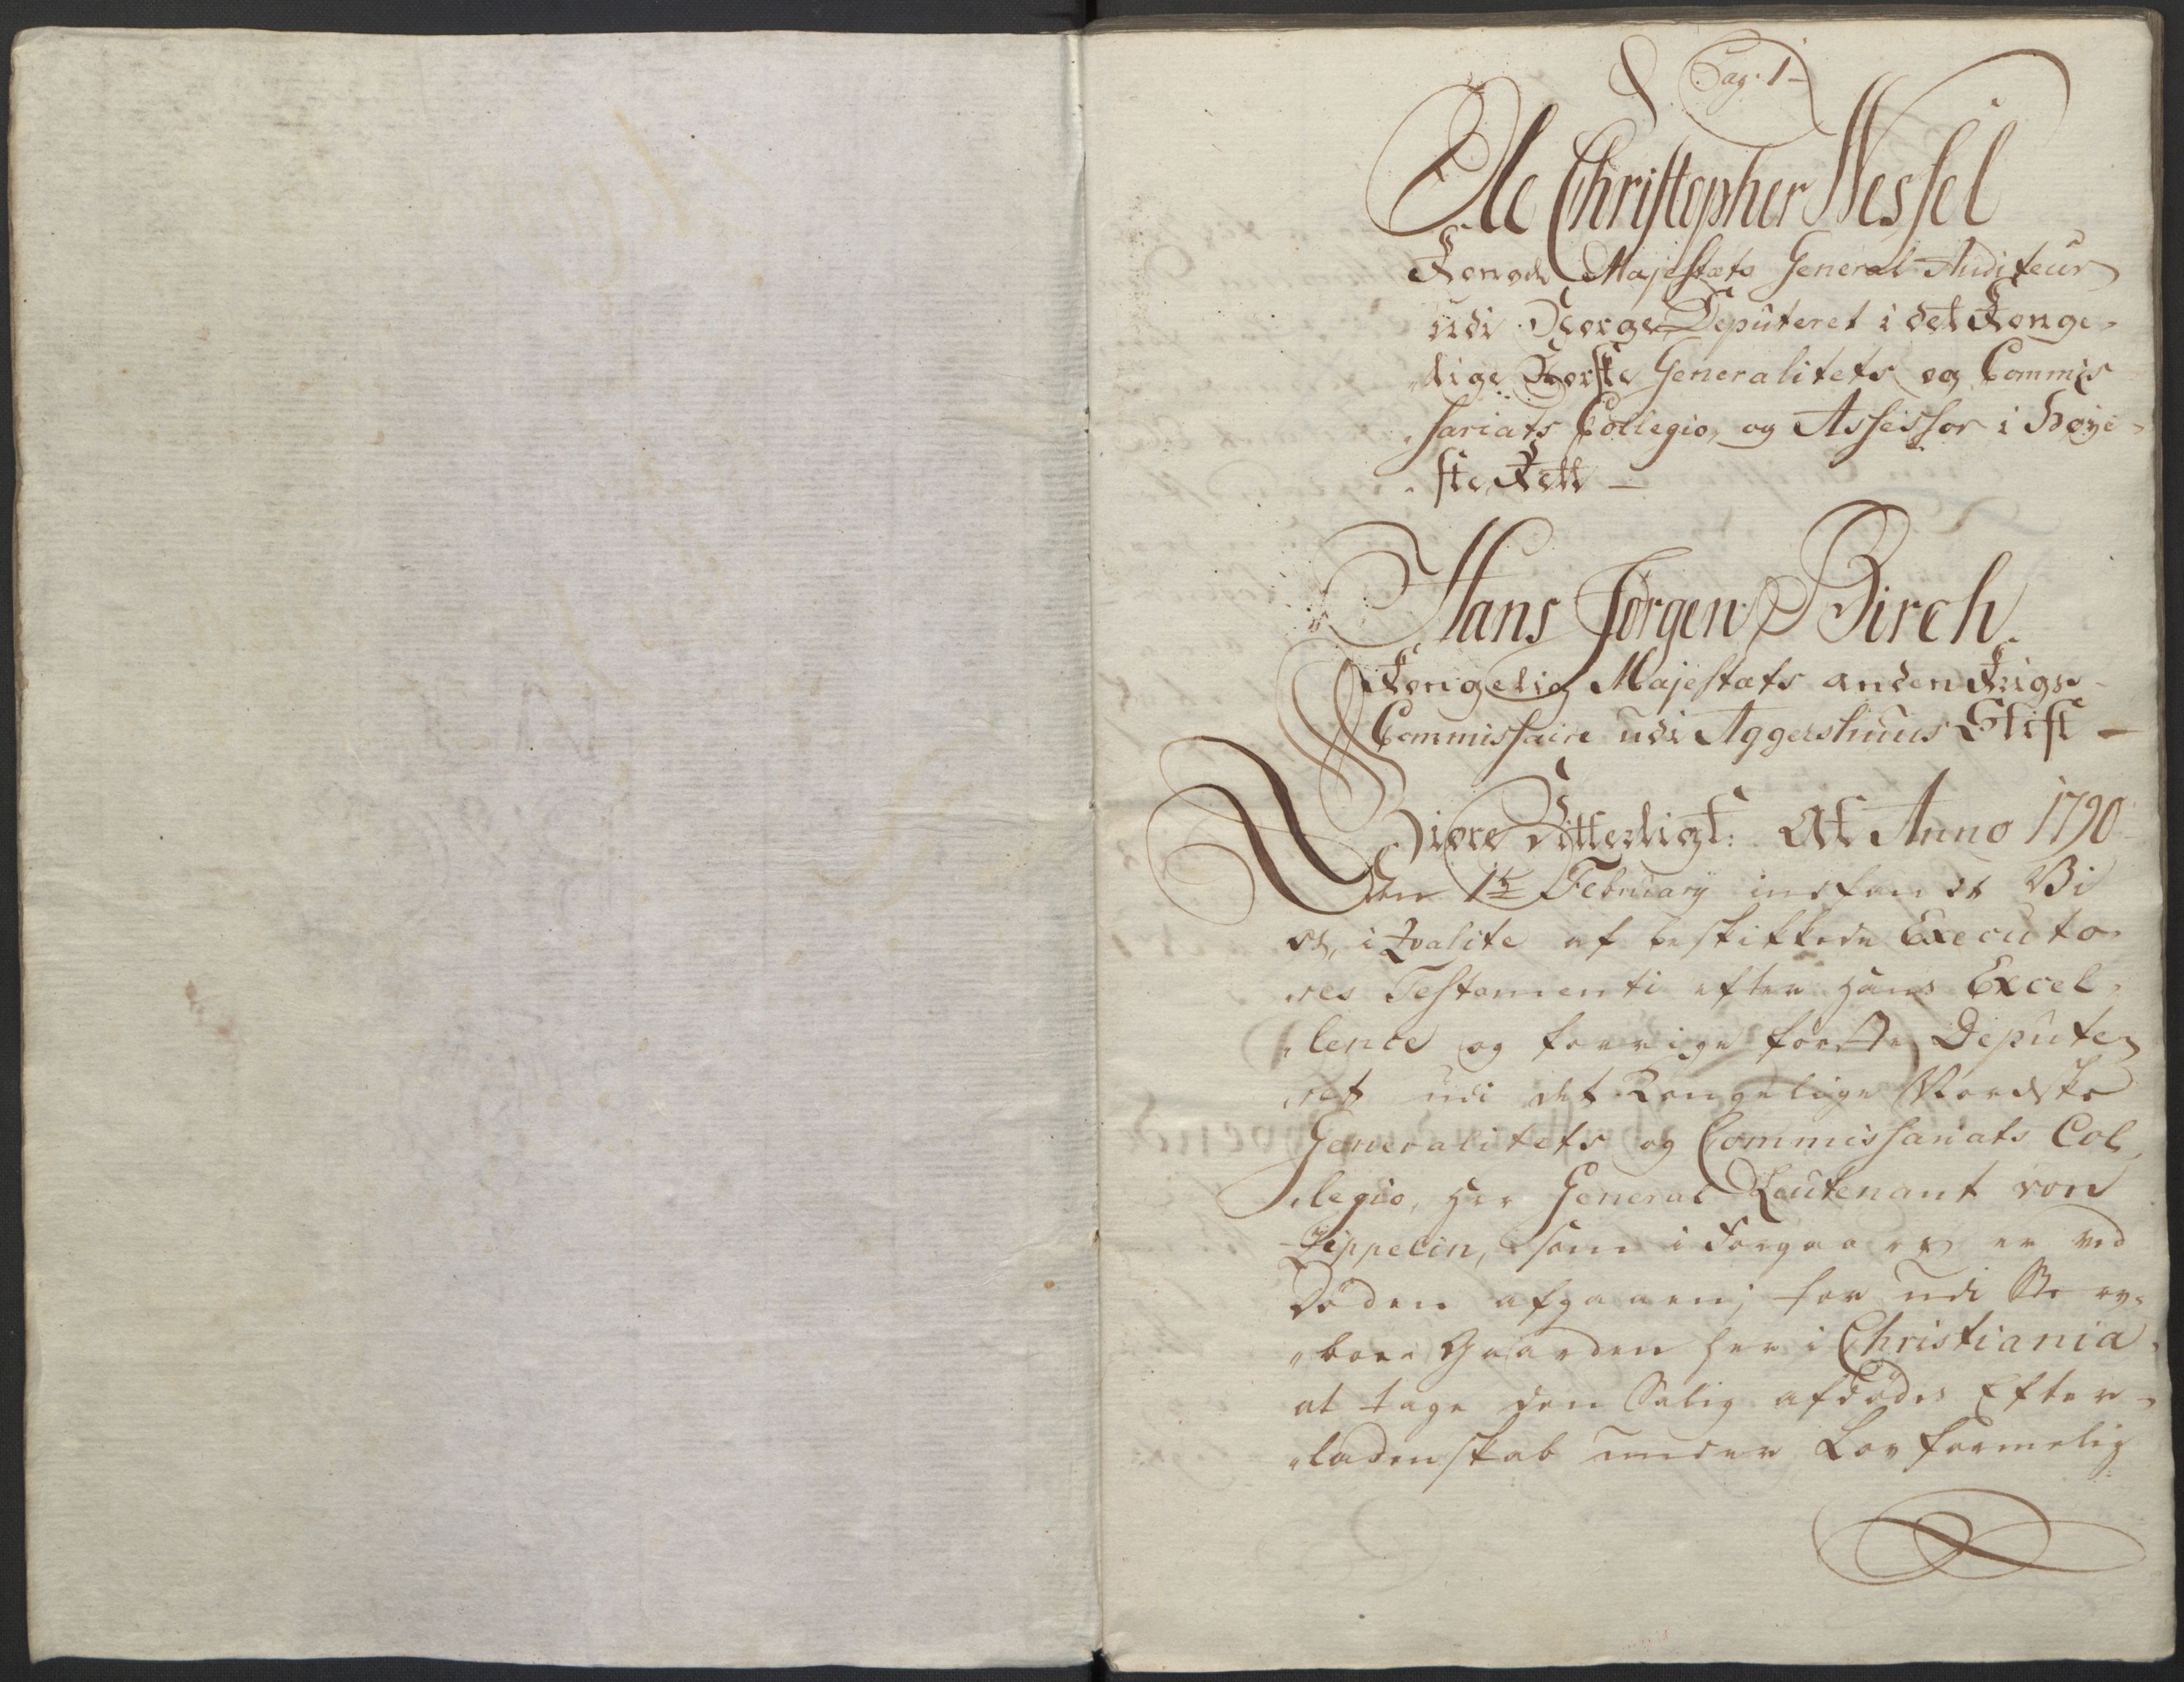 Pag: 1
Ole Christopher Wessel
Kongl: Majestæts General Auditeur
udi Norge Deputeret i det Konge-
„lige Norske Generalitets og Commis
„sariats Collegio, og Assessor i Høye-
„ste Rett —
Hans Jørgen Birch.
Kongelig Majestæts anden Krigs-
Commissaire udi Aggershuus Stift —
Giøre Vitterligt: At Anno 1790
den 1te February indfandt Vi
os, i Qvalite af beskikkede Executo-
„res Testamenti efter Hans Excel-
„lence og forrige første Depute-
„ret udi det Kongelige Nordske
Generalitets og Commissariats Col
„legio, Her General Leutenant von
Zeppelin, som i Forgaars er ved
Døden afgaaen; her udi Sterv-
„boe Gaarden her i Christiania,
at tage den Salig afdødes Efter-
„ladenskab under Lovformelig